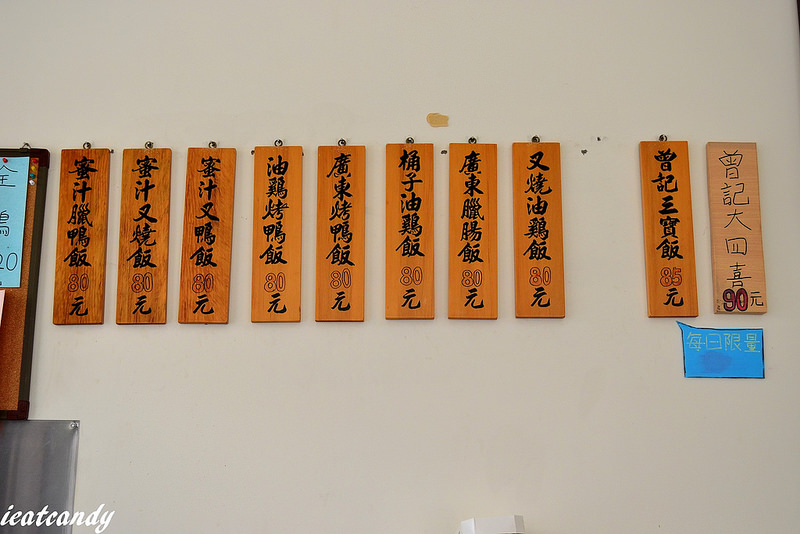 蜜汁臘鴨飯80元
蜜汁叉燒飯80元
蜜汁叉鴨飯80元
油鷄烤鴨飯80元
廣東烤鴨飯80元
桶子油鷄飯80元
廣東臘腸飯80元
叉燒油鷄飯80元
曾記三寶飯85元
曾記大四喜90元
每日限量
ieatcandy